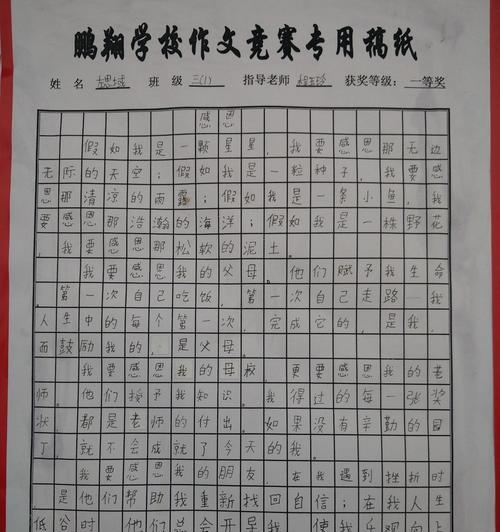 鹏翔学校作文竞赛专用稿纸
姓 名 班 级 三(1) 指导老师 获奖等级: 一等奖
感恩
假如我是一颗星星，我要感恩那无边
无际的天空；假如我是一粒种子，我要感
恩那清凉的雨露；假如我是一条小鱼，我
要感恩那浩瀚的海洋；假如我是一株野花
，我要感恩那松软的泥土。
我要感恩我的父母。他们赋予我生命
。第一次自己吃饭，第一次自己走路…我
人生中的每个第一次，完成它的，是我，
而鼓励我的，是父母。
我要感恩我的母校 更要感恩我的老
师。他们授予我知识。我得过的每一张奖
状，都是老师的付出。如果没有辛勤的园
丁，就不会成就了今天的我。
我要感恩我的朋友，在我遇到挫折时
，是他们帮助我重新找回自信；在我人生
低谷时，他们总会开导我，使我乐观向上